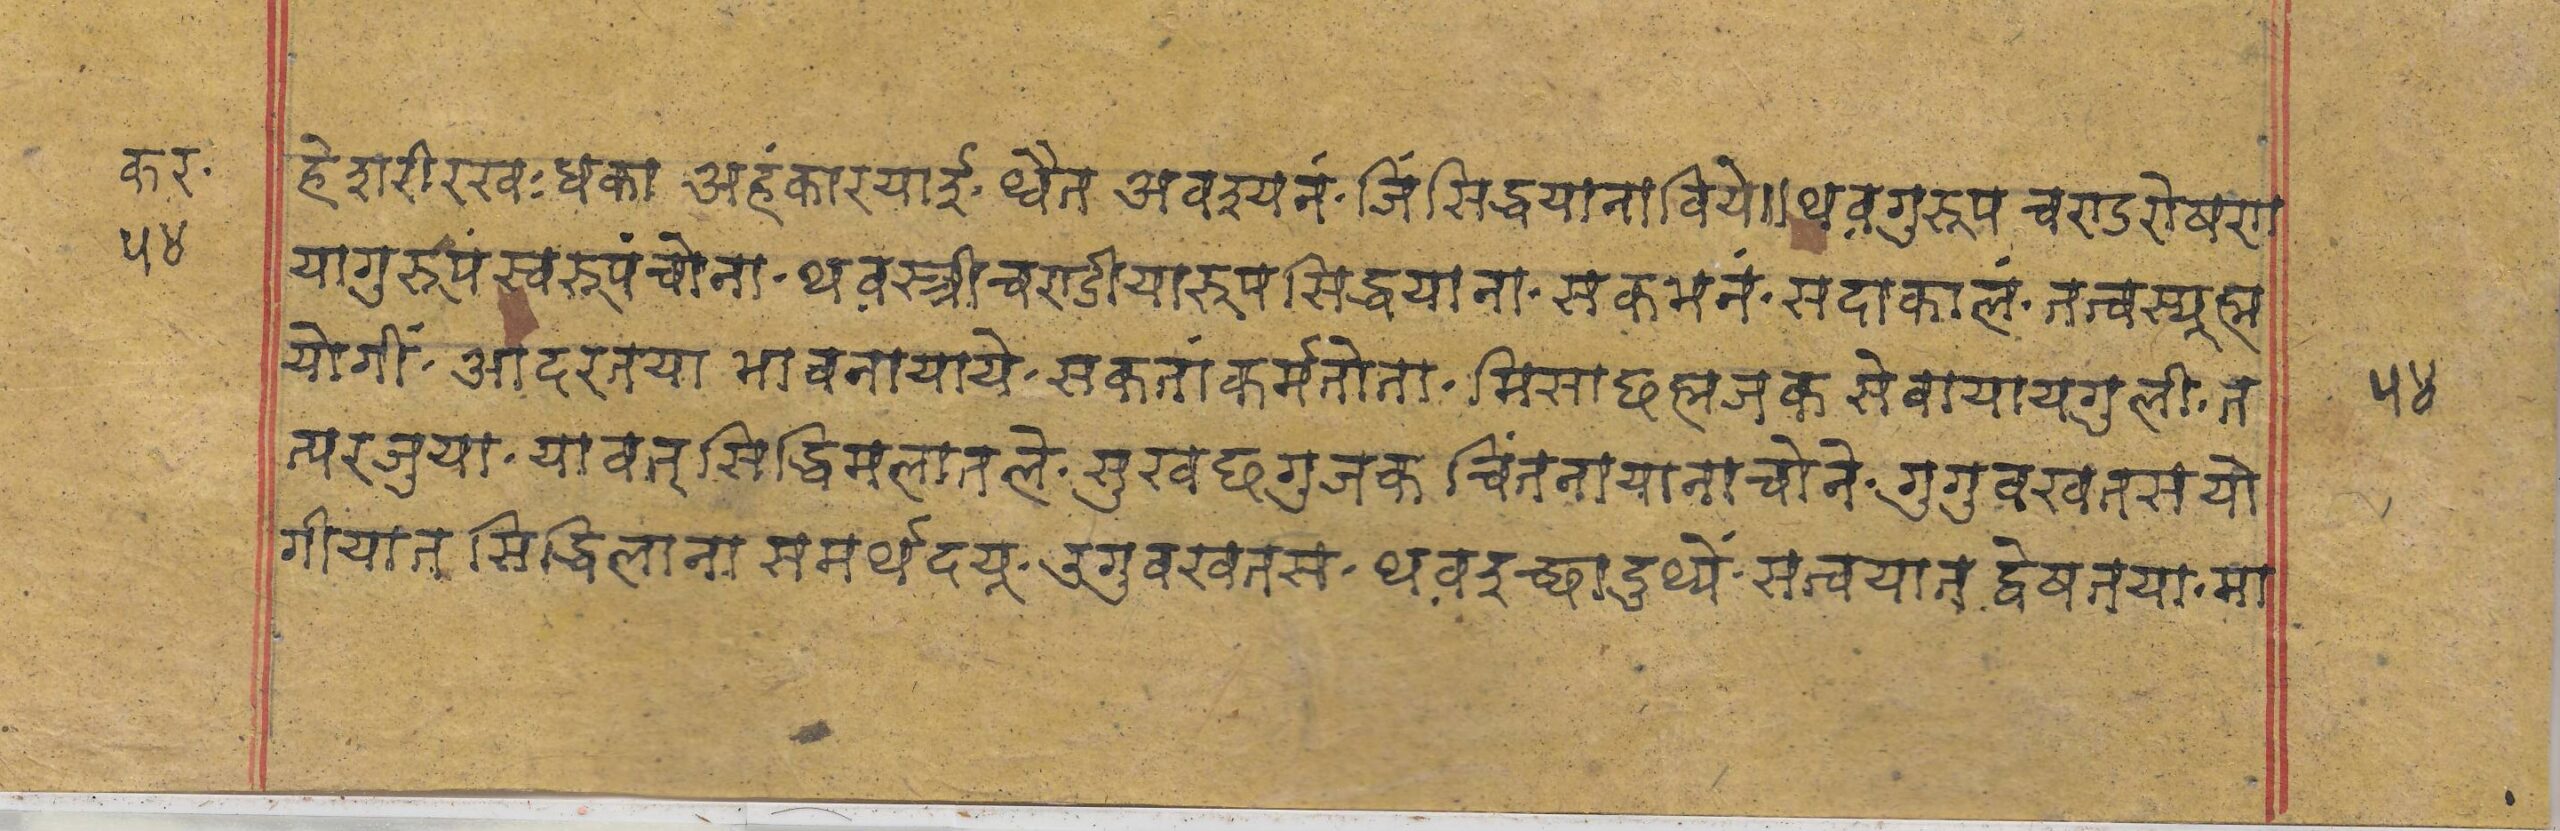 कर·
५४
हे शरीरखः धका अहंकारयाई· थ्वैत अवश्यनं· जिंसिद्धयानाविये॥ थव़गुरूप चण्डरोषण
यागुरूपं स्वरूपं चोना· थव़स्त्रीचण्डीयारूप सिद्धयाना· सकभनं· सदाकालं· तत्वस्यूह्म
योगीं· आदरतया भावनायाये· सकतां कर्मतोता· मिसाछह्मजक सेवायायगुली· त
त्परजुया· यावत् सिद्धिमलातले· सुखछगुजक चिंतनायानाचोने· गुगुवखतस यो
गीयात सिद्धिलाना समर्थदयू· उगुवखतस· थव़इच्छादुथ्यें· सत्वयात द्वेषतया· मा
५४